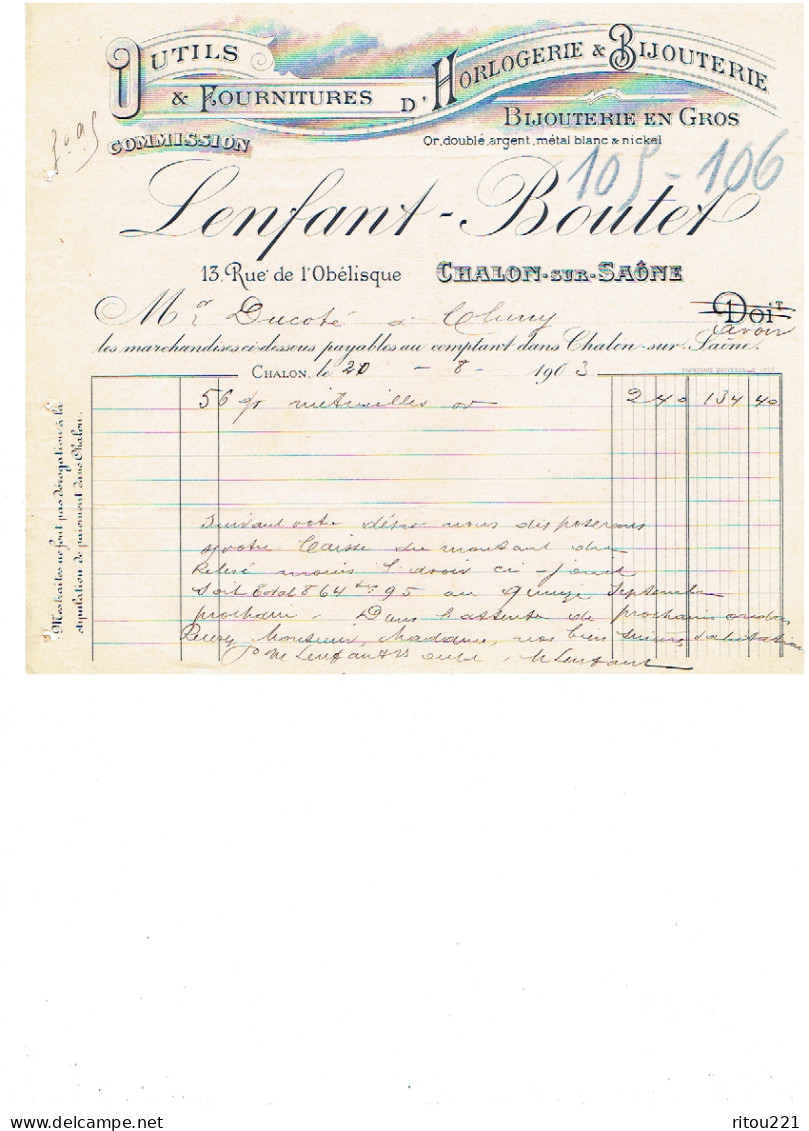 OUTILS
& FOURNITURES D'HORLOGERIE & BIJOUTERIE
BIJOUTERIE EN GROS
COMMISSION
Or, doublé, argent, métal blanc & nickel
105-106
Lenfant-Boutet
13, Rue de l'Obélisque CHALON-SUR-SAÔNE
Mr Ducoté à Cluny Doit
avoir
les marchandises ci-dessous payables au comptant dans Chalon-sur-Saône.
CHALON, le 20 - 8 - 1903
56 gr mitrailles or 2 40 134 40
Nos traites ne font pas dérogation à la
stipulation de paiement dans Chalon.
Suivant votre désir nous disposerons
s/votre Caisse du montant du
Relevé moins l'avoir ci-joint
soit total 864 95 au quinze Septembre
prochain. Dans l'attente de prochains ordres
Recevez, Monsieur, Madame, nos bien sincères salutations
Lenfant M Lenfant
ritou221